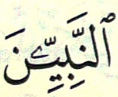 ٱلنَّبِيِّـۧنَ